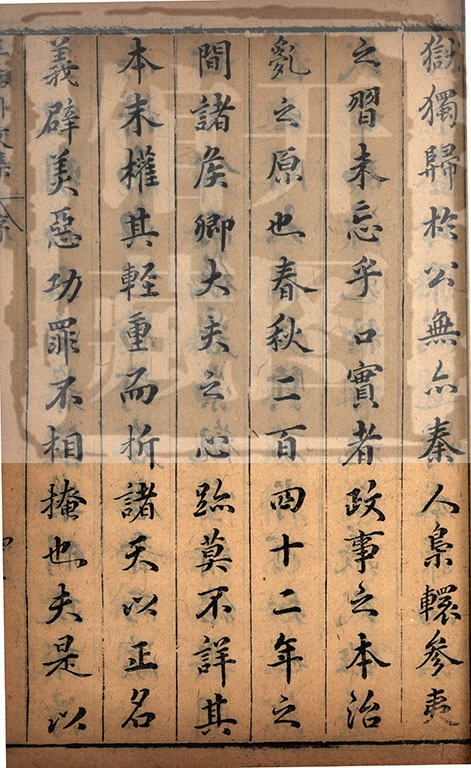 獄獨歸於公無亦秦人梟轘參夷
之習未忘乎口實者政事之本治
亂之原也春秋二百四十二年之
間諸侯卿大夫之心跡莫不詳其
本末權其輕重而折諸天以正名
義辟美惡功罪不相掩也夫是以